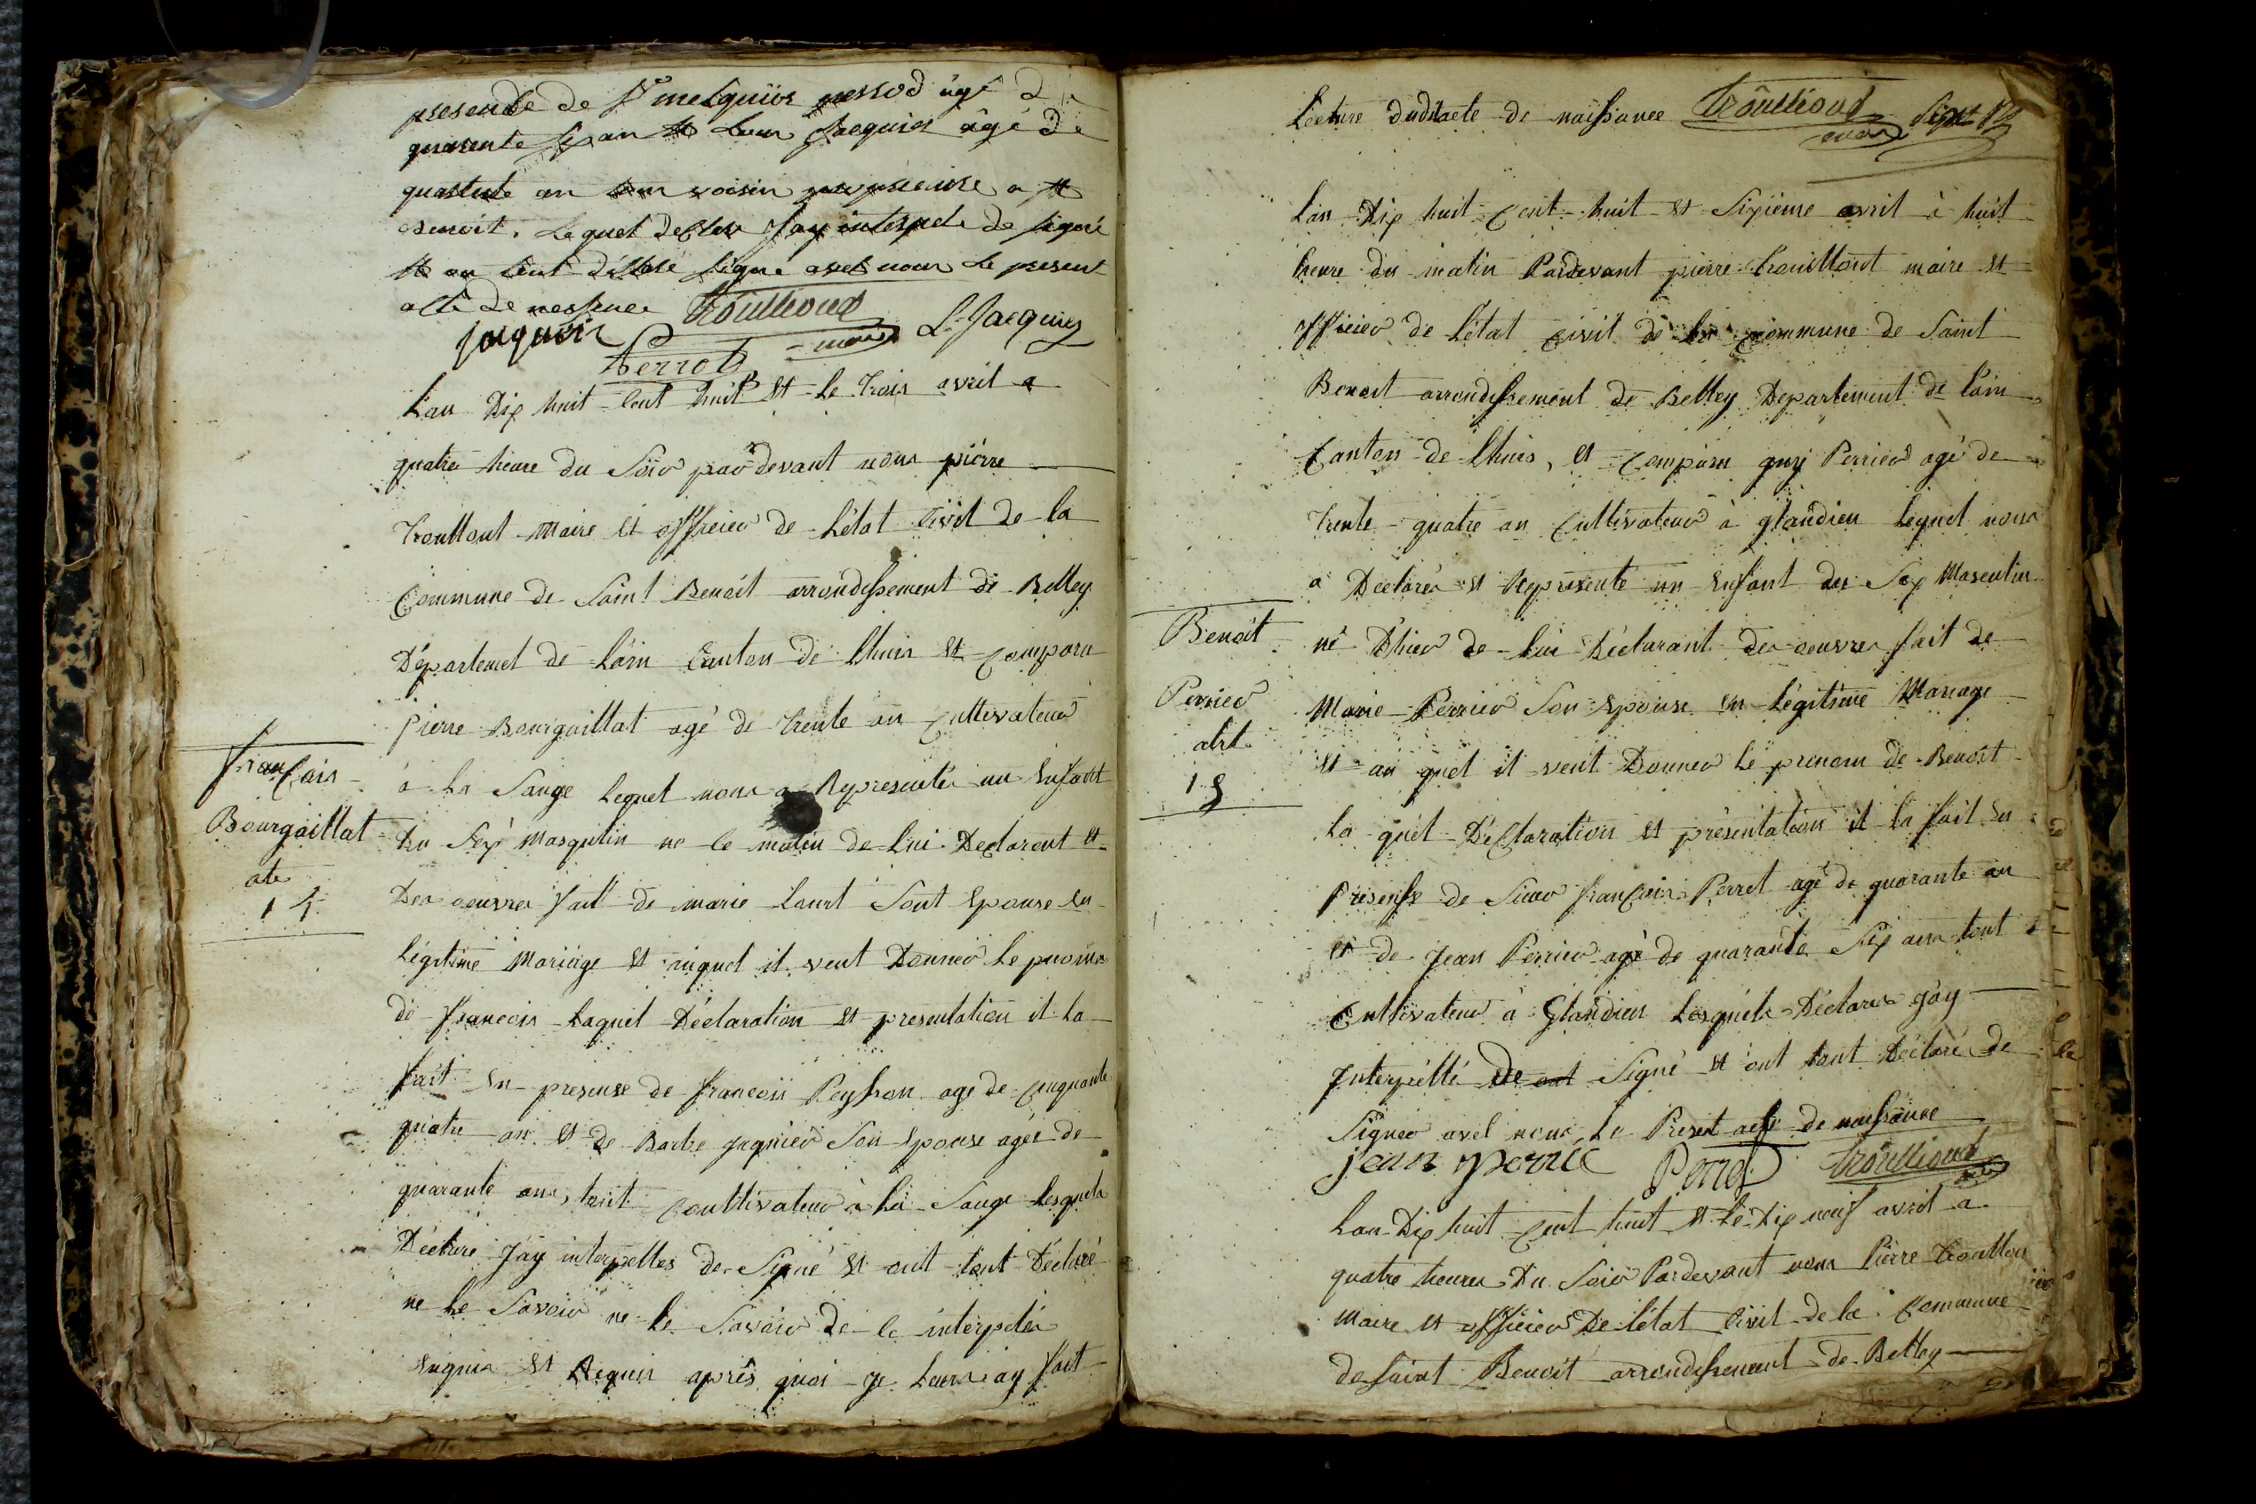 presence de Sr melquior perrod âgé de
quarente six an et Louis Jacquier âgé de
quarente an son voisin a St
Benoit. Lequel declare Jay interpele de signé
et on tout déclaré signé avec nous Le present
acte de nessance Trouilloud
jaquier Perrod maire L. Jacquier
L'an Dix huit Cent huit et le trois avril a
quatre heure du Soir pardevant nous pierre
Trouillout Maire et officier de L'état Civil de la
Commune de Saint Benoit arrondissement de Belley
Département de L'ain Canton de Lhuis et Comparu
pierre Bourgaillat agé de trente an Cultivateur
à La Sauge Lequel nous a Representée un Enfant
François
Bourgaillat
ate
14
du Sex Masqulin ne le matin de Lui Declarent et
Des oeuvres fait de marie Laurt Sont Epouse En
Légitime Mariage et auquel il veut Donner Le prenom
de francois Laquel Déclaration et presentation il La
fait En presense de francois Peysson age de Cinquante
quatre an et de Barbe jaquier Son Epouse agée de
quarante ans, tout Coultivateur à La Sauge Lesquels
Décluré J'ay interpelles de Signé et ont tout Déclaré
ne Le Savoir ne Le Savoir de le interpelés
Enquis et Requis après quoi je Leurs ay fait
Lecture duditacte de naissance Trouilloud
maire
L'an Dix huit Cent huit et Sixieme avril à huit
heure du matin Pardevant pierre trouillout maire et
officier de L'état Civil de la Commune de Saint
Benoit arrondissement de Belley Departement de L'ain
Canton de Lhuis, et Comparu guy Perrier agé de
trente quatre an Cultivateur à glandieu lequel nous
a Déclarée et Représente un Enfant du Sex Masculin
Benoit
Perrier
abt
15
né D'hier de Lui Déclarant des oeuvres fait de
Marie Perrier Son Epouse En Légitime Mariage
et au quel il veut Donner Le prenom de Benoit
La quel Déclaration et présentation il la fait En
Présense de Sieur françois Perret agé de quarante an
et de Jean Perrier agé de quarante Six ans tout
Cultivateur à Glandieu Lesquels Déclares j'ay
Interpéllé de Signé et ont tout Déclaré de
Signer avel nous Le Present acte de naissance
jean perrié Perret Trouilloud
L'an Dix huit Cent huit et Le Dix neuf avril a
quatre heures Du Soir Pardevant nous Pierre trouillou
Maire et officier De L'état Civil de la Commune
de Saint Benoit arrondissement de Belley